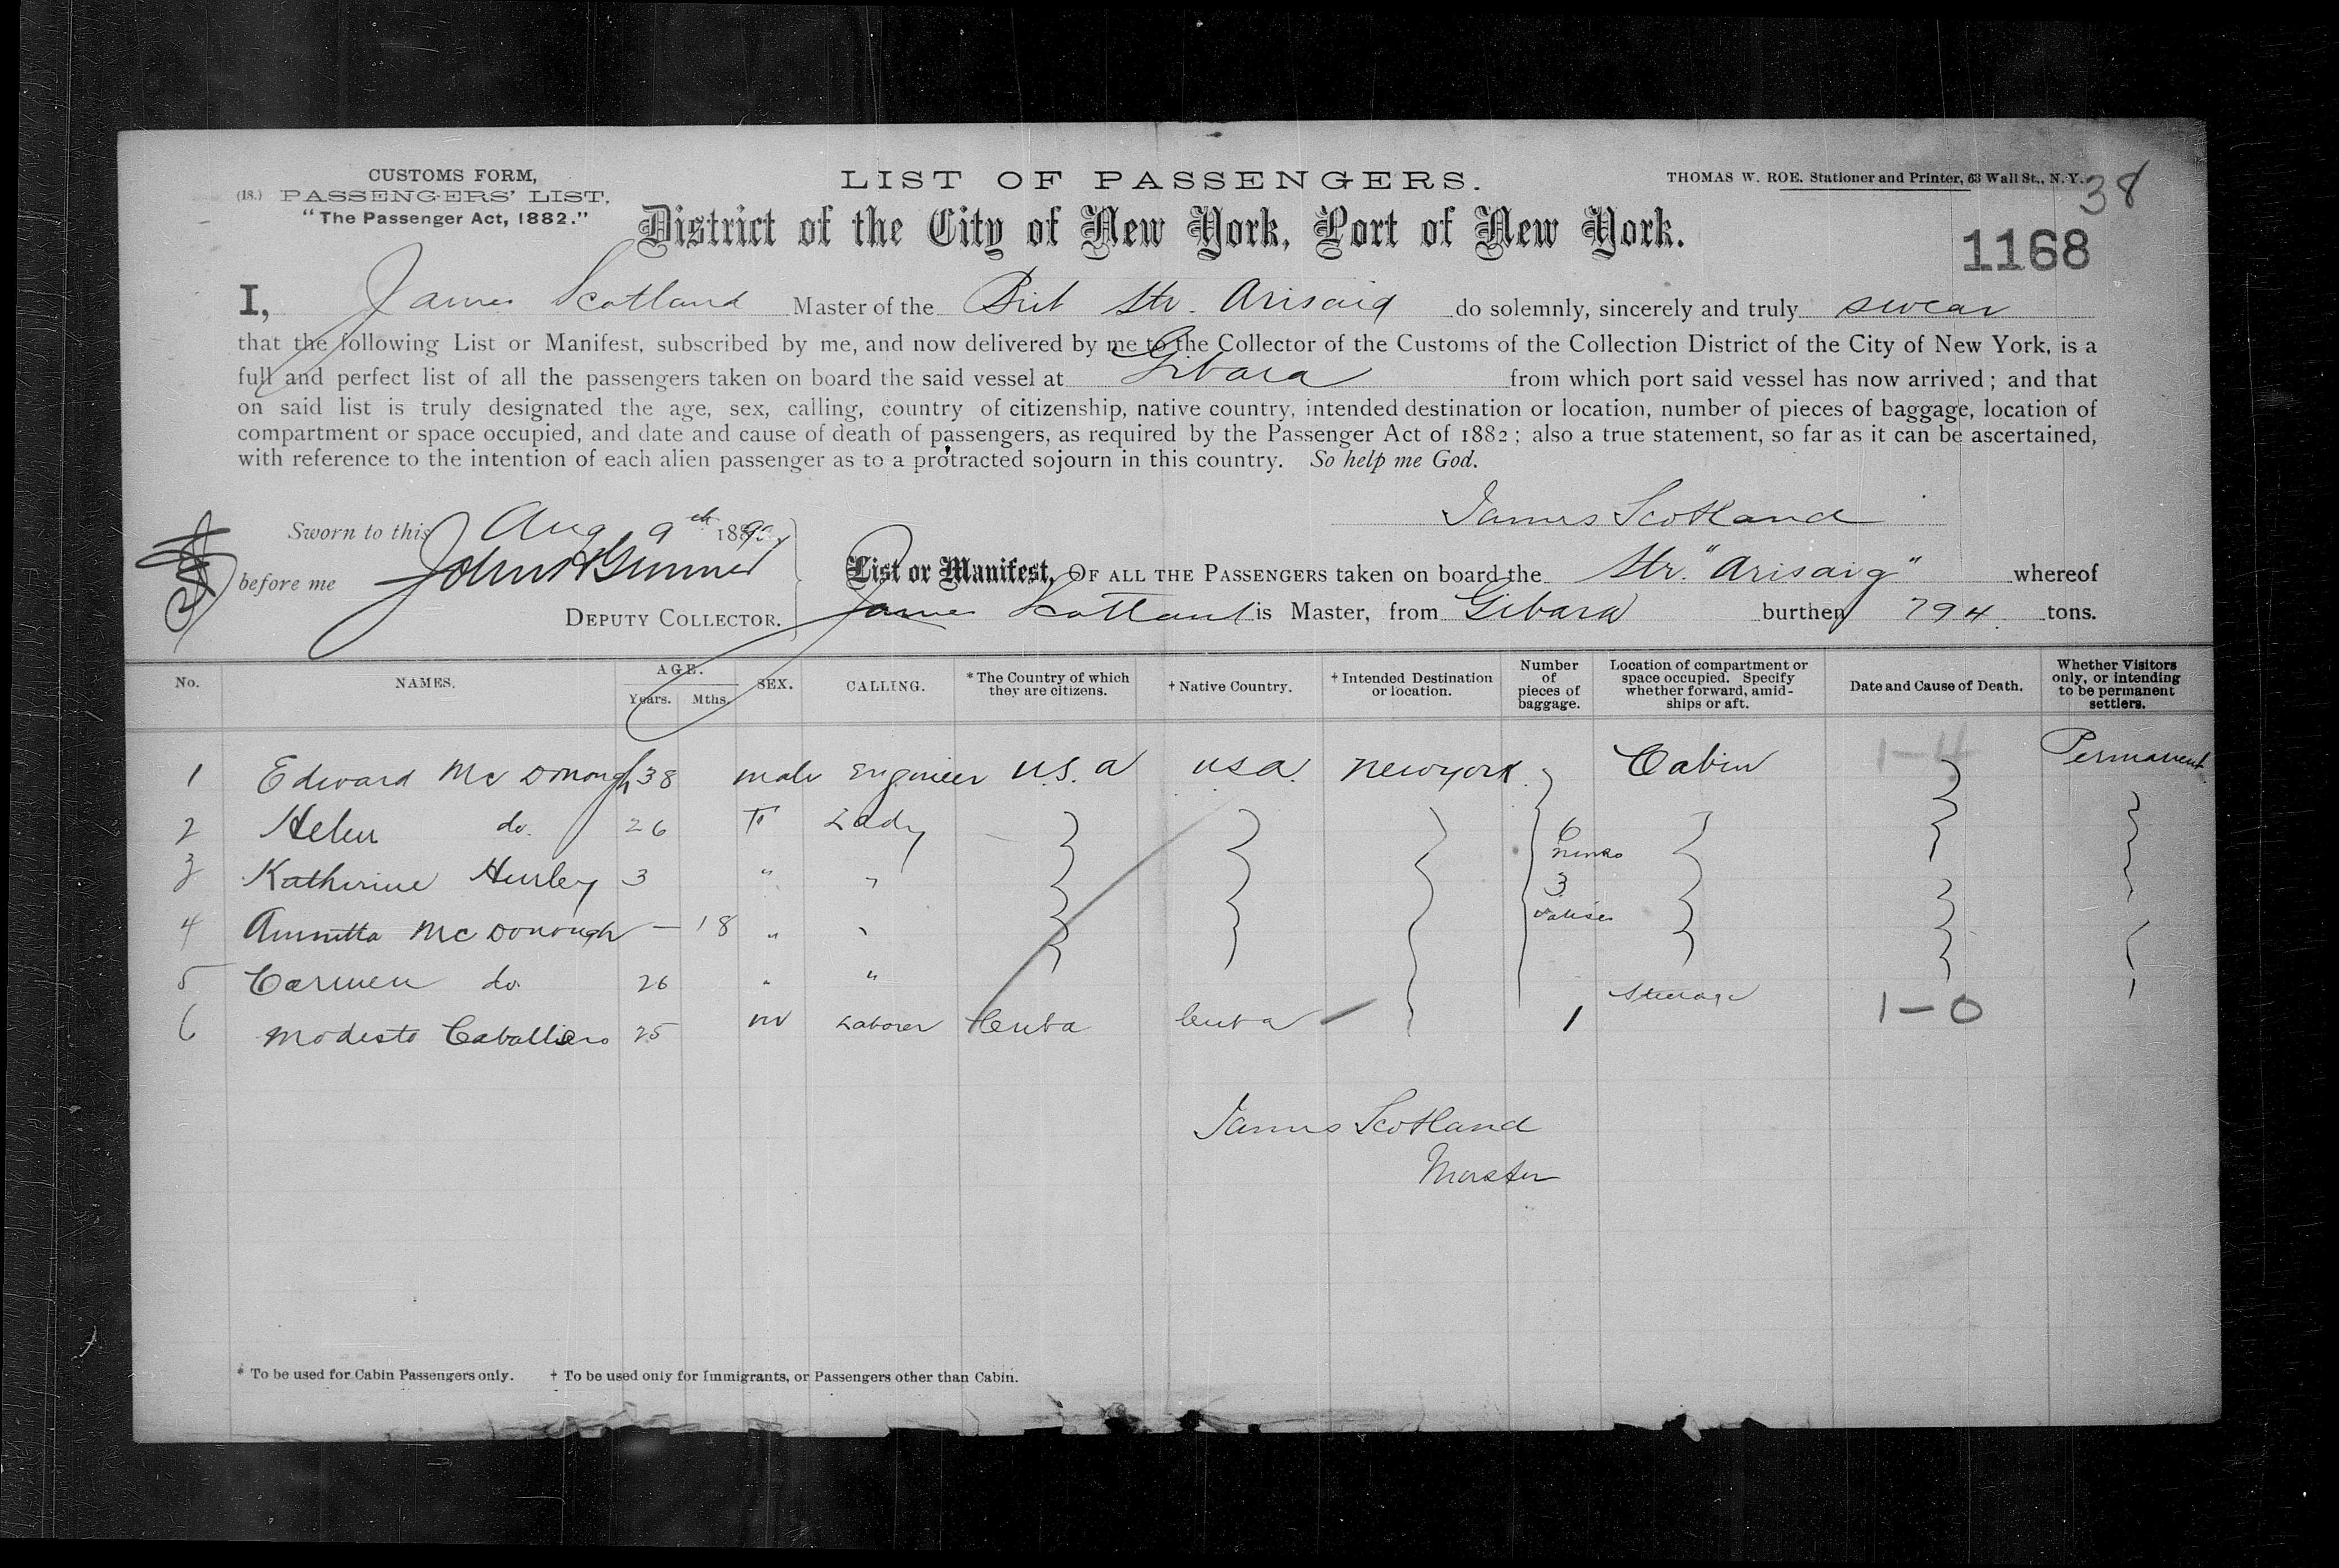 CUSTOMS FORM,
(18.) PASSENGERS' LIST.
"The Passenger Act, 1882."
LIST OF PASSENGERS.
THOMAS W. ROE. Stationer and Printer, 63 Wall St., N.Y.
38
District of the City of New York, Port of New York.
1168
I, James Scotland Master of the Brit Str. Arisaig do solemnly, sincerely and truly swear
that the following List or Manifest, subscribed by me, and now delivered by me to the Collector of the Customs of the Collection District of the City of New York, is a
full and perfect list of all the passengers taken on board the said vessel at Gibara from which port said vessel has now arrived; and that
on said list is truly designated the age, sex, calling, country of citizenship, native country, intended destination or location, number of pieces of baggage, location of
compartment or space occupied, and date and cause of death of passengers, as required by the Passenger Act of 1882; also a true statement, so far as it can be ascertained,
with reference to the intention of each alien passenger as to a protracted sojourn in this country. So help me God.
James Scotland
Sworn to this Aug 9th 1890
before me
DEPUTY COLLECTOR.
List or Manifest, OF ALL THE PASSENGERS taken on board the Str. "Arisaig" whereof
James Scotland is Master, from Gibara burthen 794 tons.
No. NAMES. AGE. Years. Mths. SEX. CALLING. * The Country of which they are citizens. † Native Country. † Intended Destination or location. Number of pieces of baggage. Location of compartment or space occupied. Specify whether forward, amidships or aft. Date and Cause of Death. Whether Visitors only, or intending to be permanent settlers.
1 Edward McDonough 38 male Engineer U.S.A U.S.A. New York Cabin 1-4 Permanent
2 Helen do. 26 F Lady 6
3 Katherine Hurley 3 " " 3
4 McDonough — 18 " " valises
5 Carmen do. 26 " " Steerage
6 Modesto Caballero 25 M Laborer Cuba Cuba 1 1-0
James Scotland
Master
* To be used for Cabin Passengers only. † To be used only for Immigrants, or Passengers other than Cabin.